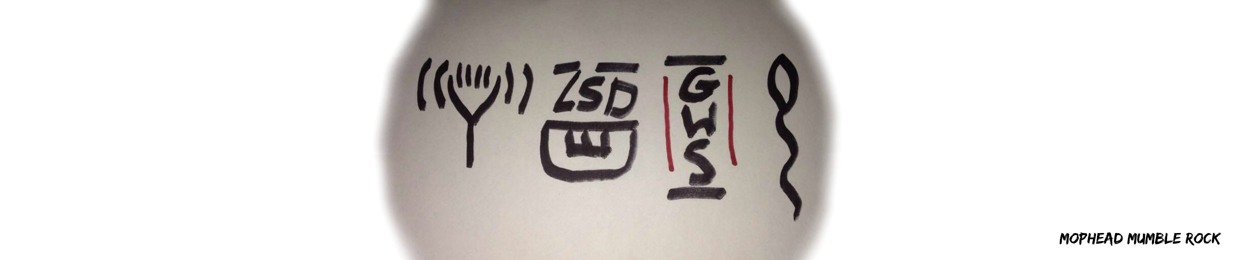 ZSD
E
G
W
S
MOPHEAD MUMBLE ROCK